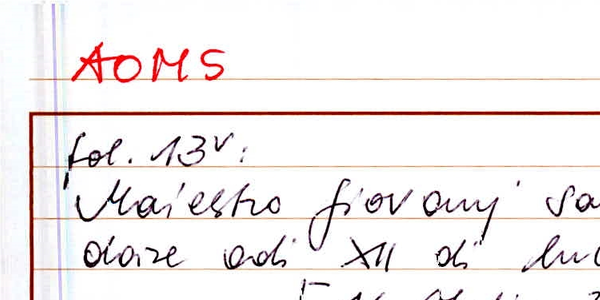 AOMS
fol. 13v:
Maiestro giovanj
dare adi XII di